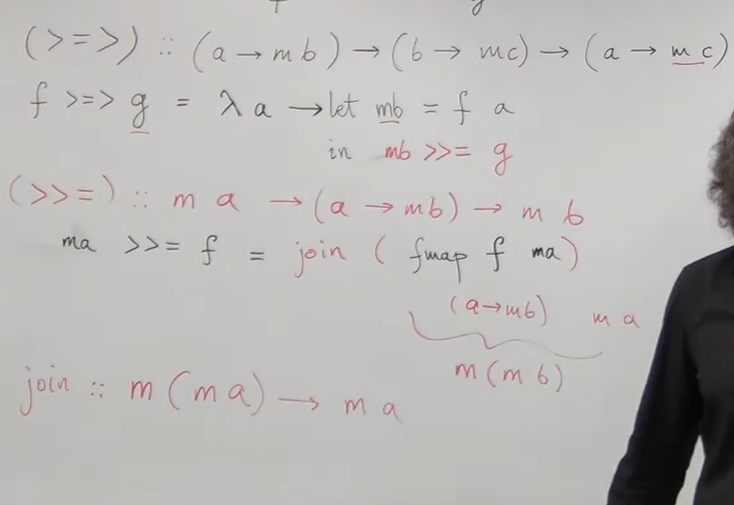 (>=>) :: (a → m b) → (b → mc) → (a → m c)
f >=> g = λ a → let mb = f a
in mb >>= g
(>>=) :: m a → (a → mb) → m b
ma >>= f = join ( fmap f ma)
(a→mb) m a
m(m b)
join :: m(ma) → m a